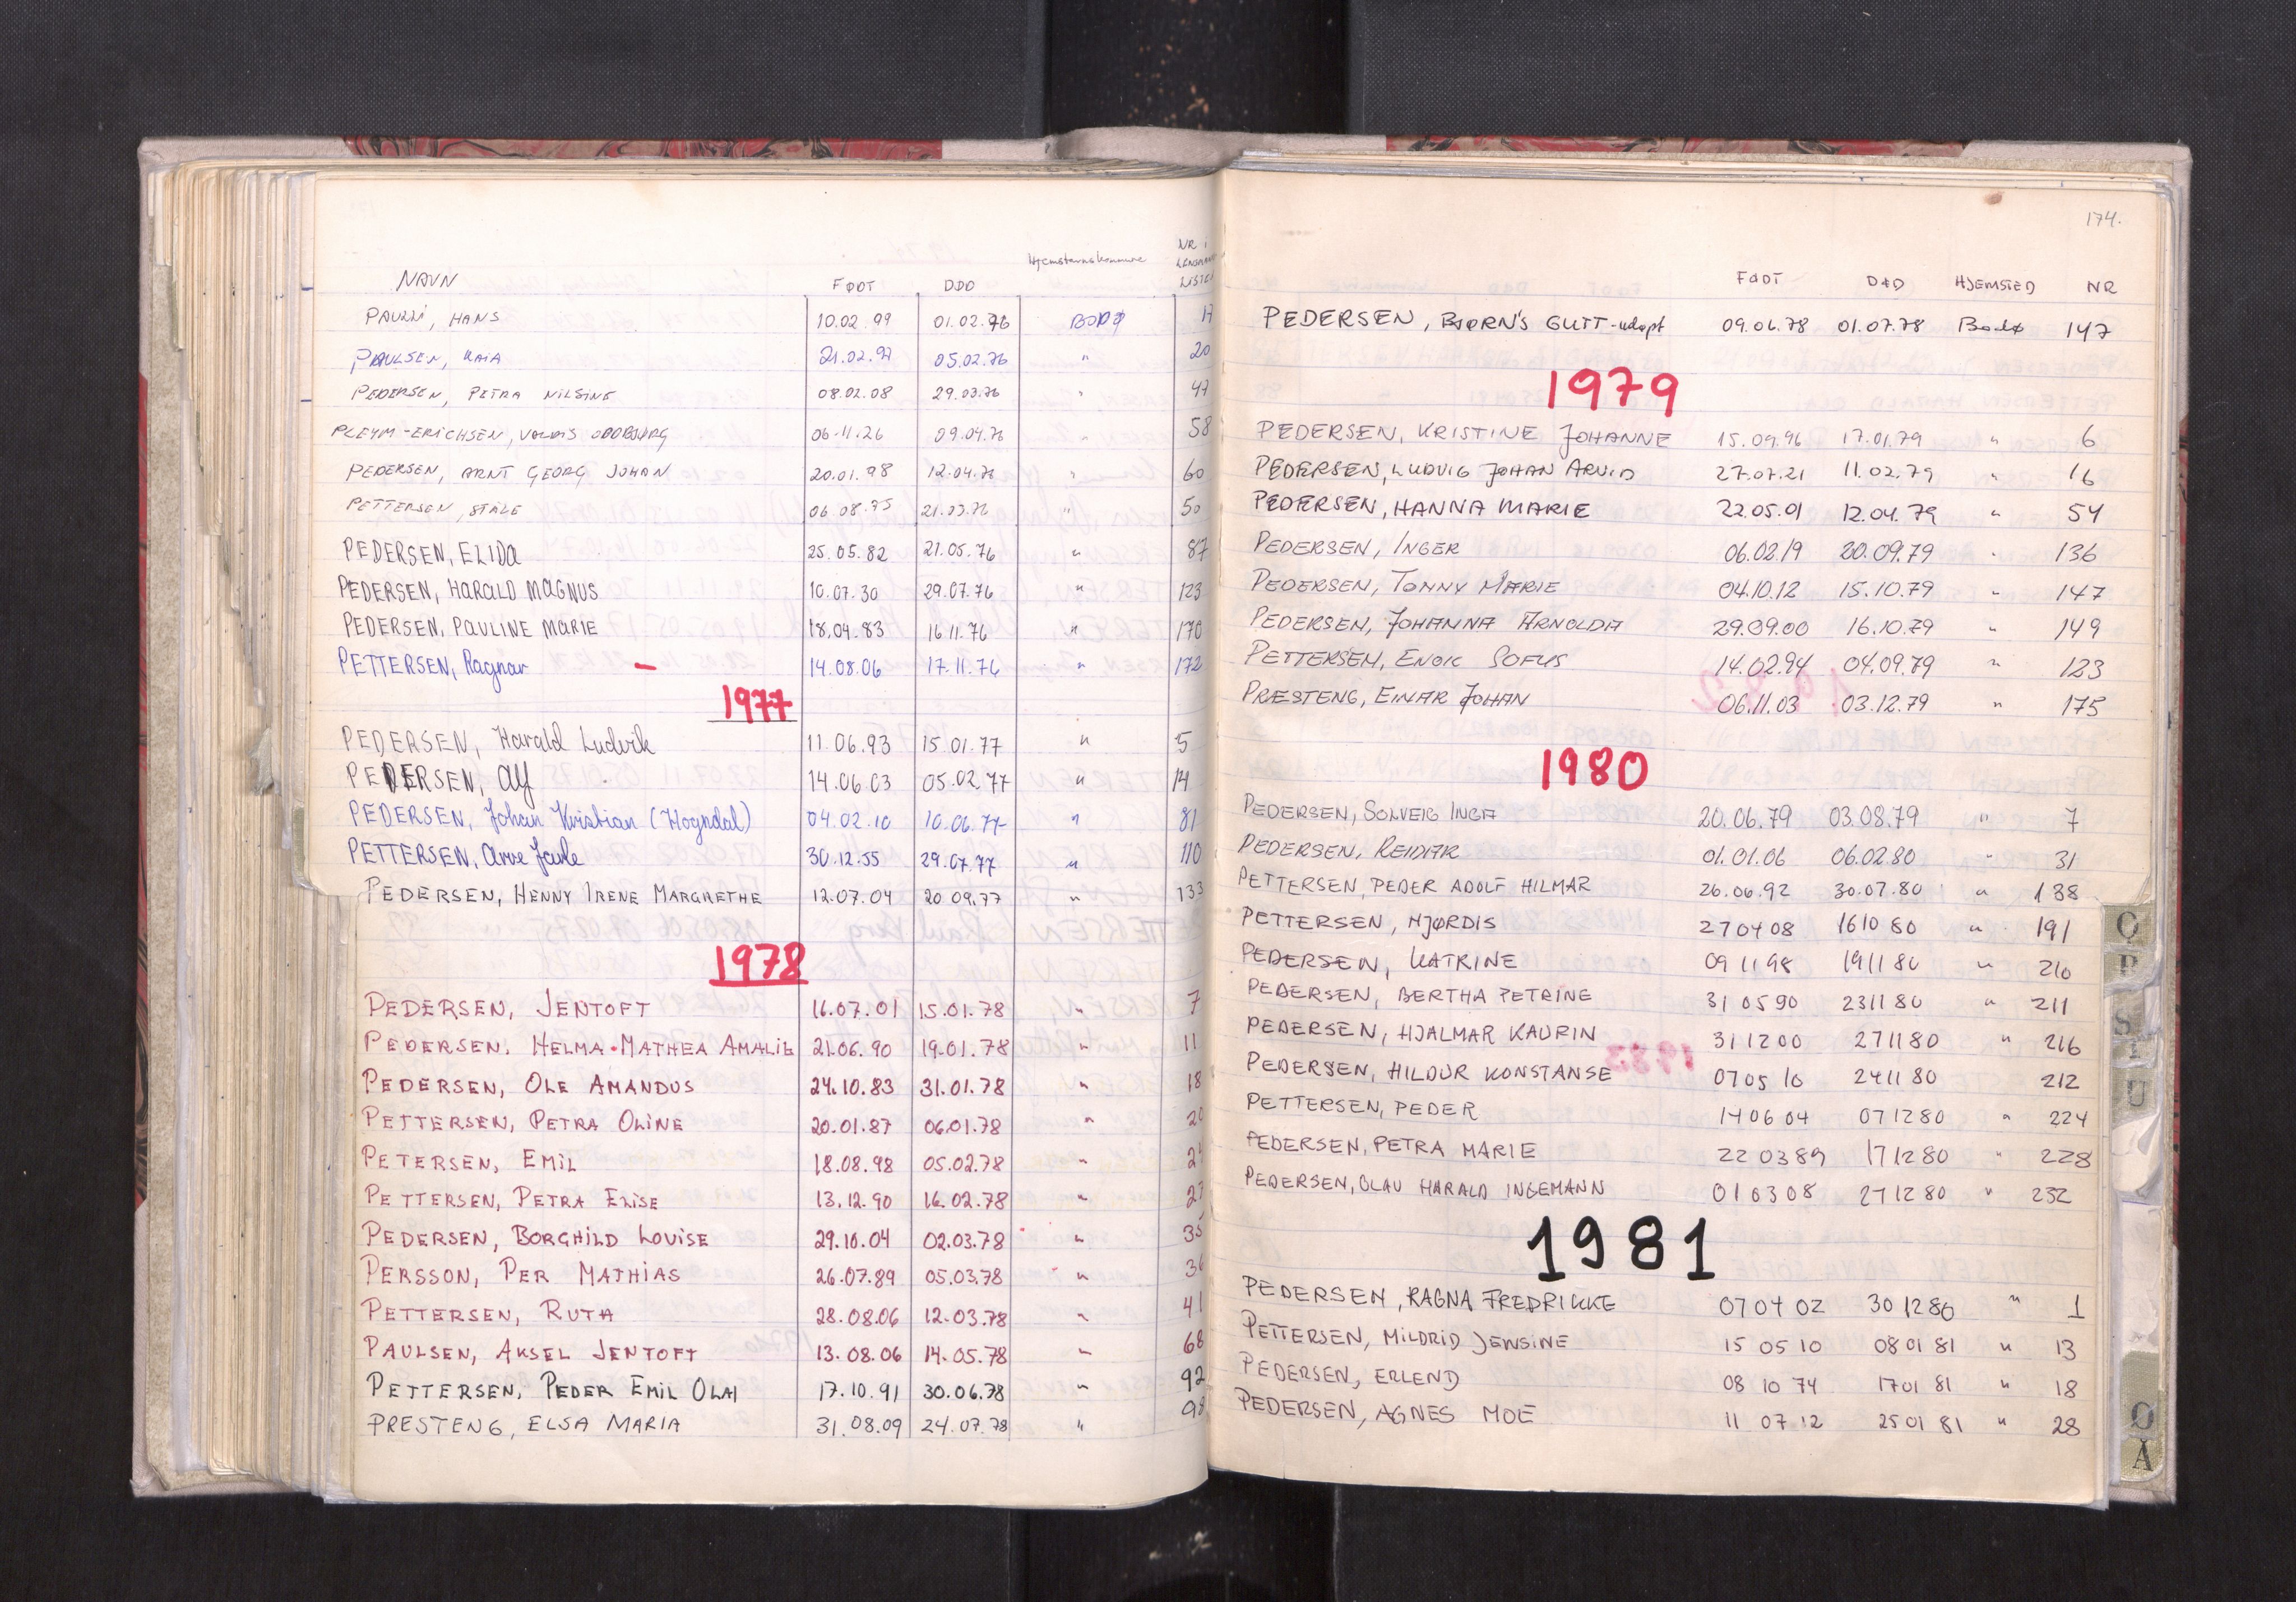 NAVN FØDT DØD Hjemstavnskommune NR i LENSMANNS LISTEN
PAULLI, HANS 10.02.99 01.02.76 BODØ 17
PAULSEN, KAIA 21.02.97 05.02.76 " 20
PEDERSEN, PETRA NILSINE 08.02.08 29.03.76 " 47
PLEYM-ERICHSEN, 06.11.26 09.04.76 " 58
PEDERSEN, ARNT GEORG JOHAN 20.01.98 12.04.76 " 60
PETTERSEN, STÅLE 06.08.75 21.03.76 " 50
PEDERSEN, ELIDA 25.05.82 21.05.76 " 87
PEDERSEN, HARALD MAGNUS 10.07.30 29.07.76 " 123
PEDERSEN, PAULINE MARIE 18.04.83 16.11.76 " 170
PETTERSEN, Ragnar – 14.08.06 17.11.76 " 172
1977
PEDERSEN, Harald Ludvik 11.06.93 15.01.77 " 5
PEDERSEN, Alf 14.06.03 05.02.77 " 14
PEDERSEN, Johan Kristian (Hogndal) 04.02.10 10.06.77 " 81
PETTERSEN, Arve Javle 30.12.55 29.07.77 " 110
PEDERSEN, HENNY IRENE MARGRETHE 12.07.04 20.09.77 " 133
1978
PEDERSEN, JENTOFT 16.07.01 15.01.78 " 7
PEDERSEN, HELMA MATHEA AMALIE 21.06.90 19.01.78 " 11
PEDERSEN, OLE AMANDUS 24.10.83 31.01.78 " 18
PETTERSEN, PETRA OLINE 20.01.87 06.01.78 " 20
PETERSEN, EMIL 18.08.98 05.02.78 "
PETTERSEN, PETRA ELISE 13.12.90 16.02.78 " 27
PEDERSEN, BORGHILD LOUISE 29.10.04 02.03.78 " 35
PERSSON, PER MATHIAS 26.07.89 05.03.78 " 36
PETTERSEN, RUTH 28.08.06 12.03.78 " 41
PAULSEN, AKSEL JENTOFT 13.08.06 14.05.78 " 68
PETTERSEN, PEDER EMIL OLAI 17.10.91 30.06.78 " 92
PRESTENG, ELSA MARIA 31.08.09 24.07.78 " 98
174.
FØDT DØD HJEMSTED NR
PEDERSEN, BJØRN'S GUTT-udøpt 09.06.78 01.07.78 Bodø 147
1979
PEDERSEN, KRISTINE JOHANNE 15.09.96 17.01.79 " 6
PEDERSEN, LUDVIG JOHAN ARVID 27.07.21 11.02.79 " 16
PEDERSEN, HANNA MARIE 22.05.01 12.04.79 " 54
PEDERSEN, INGER 06.02.19 20.09.79 " 136
PEDERSEN, TONNY MARIE 04.10.12 15.10.79 " 147
PEDERSEN, JOHANNA ARNOLDA 29.09.00 16.10.79 " 149
PETTERSEN, ENOK SOFUS 14.02.94 04.09.79 " 123
PRÆSTENG, EINAR JOHAN 06.11.03 03.12.79 " 175
1980
PEDERSEN, SOLVEIG INGA 20.06.79 03.08.79 " 7
PEDERSEN, REIDAR 01.01.06 06.02.80 " 31
PETTERSEN, PEDER ADOLF HILMAR 26.06.92 30.07.80 " 138
PETTERSEN, HJØRDIS 27 04 08 16 10 80 " 191
PEDERSEN, KATRINE 09 11 98 19 11 80 " 210
PEDERSEN, BERTHA PETRINE 31 05 90 23 11 80 " 211
PEDERSEN, HJALMAR KAURIN 31 12 00 27 11 80 " 216
PEDERSEN, HILDUR KONSTANSE 07 05 10 24 11 80 212
PETTERSEN, PEDER 14 06 04 07 12 80 " 224
PEDERSEN, PETRA MARIE 22 03 89 17 12 80 " 228
PEDERSEN, OLAV HARALD INGEMANN 01 03 08 27 12 80 " 232
1981
PEDERSEN, RAGNA FREDRIKKE 07 04 02 30 12 80 " 1
PETTERSEN, MILDRID JENSINE 15 05 10 08 01 81 " 13
PEDERSEN, ERLEND 08 10 74 17 01 81 " 18
PEDERSEN, AGNES MOE 11 07 12 25 01 81 " 28
Q
R
S
T
U
Ø
Å